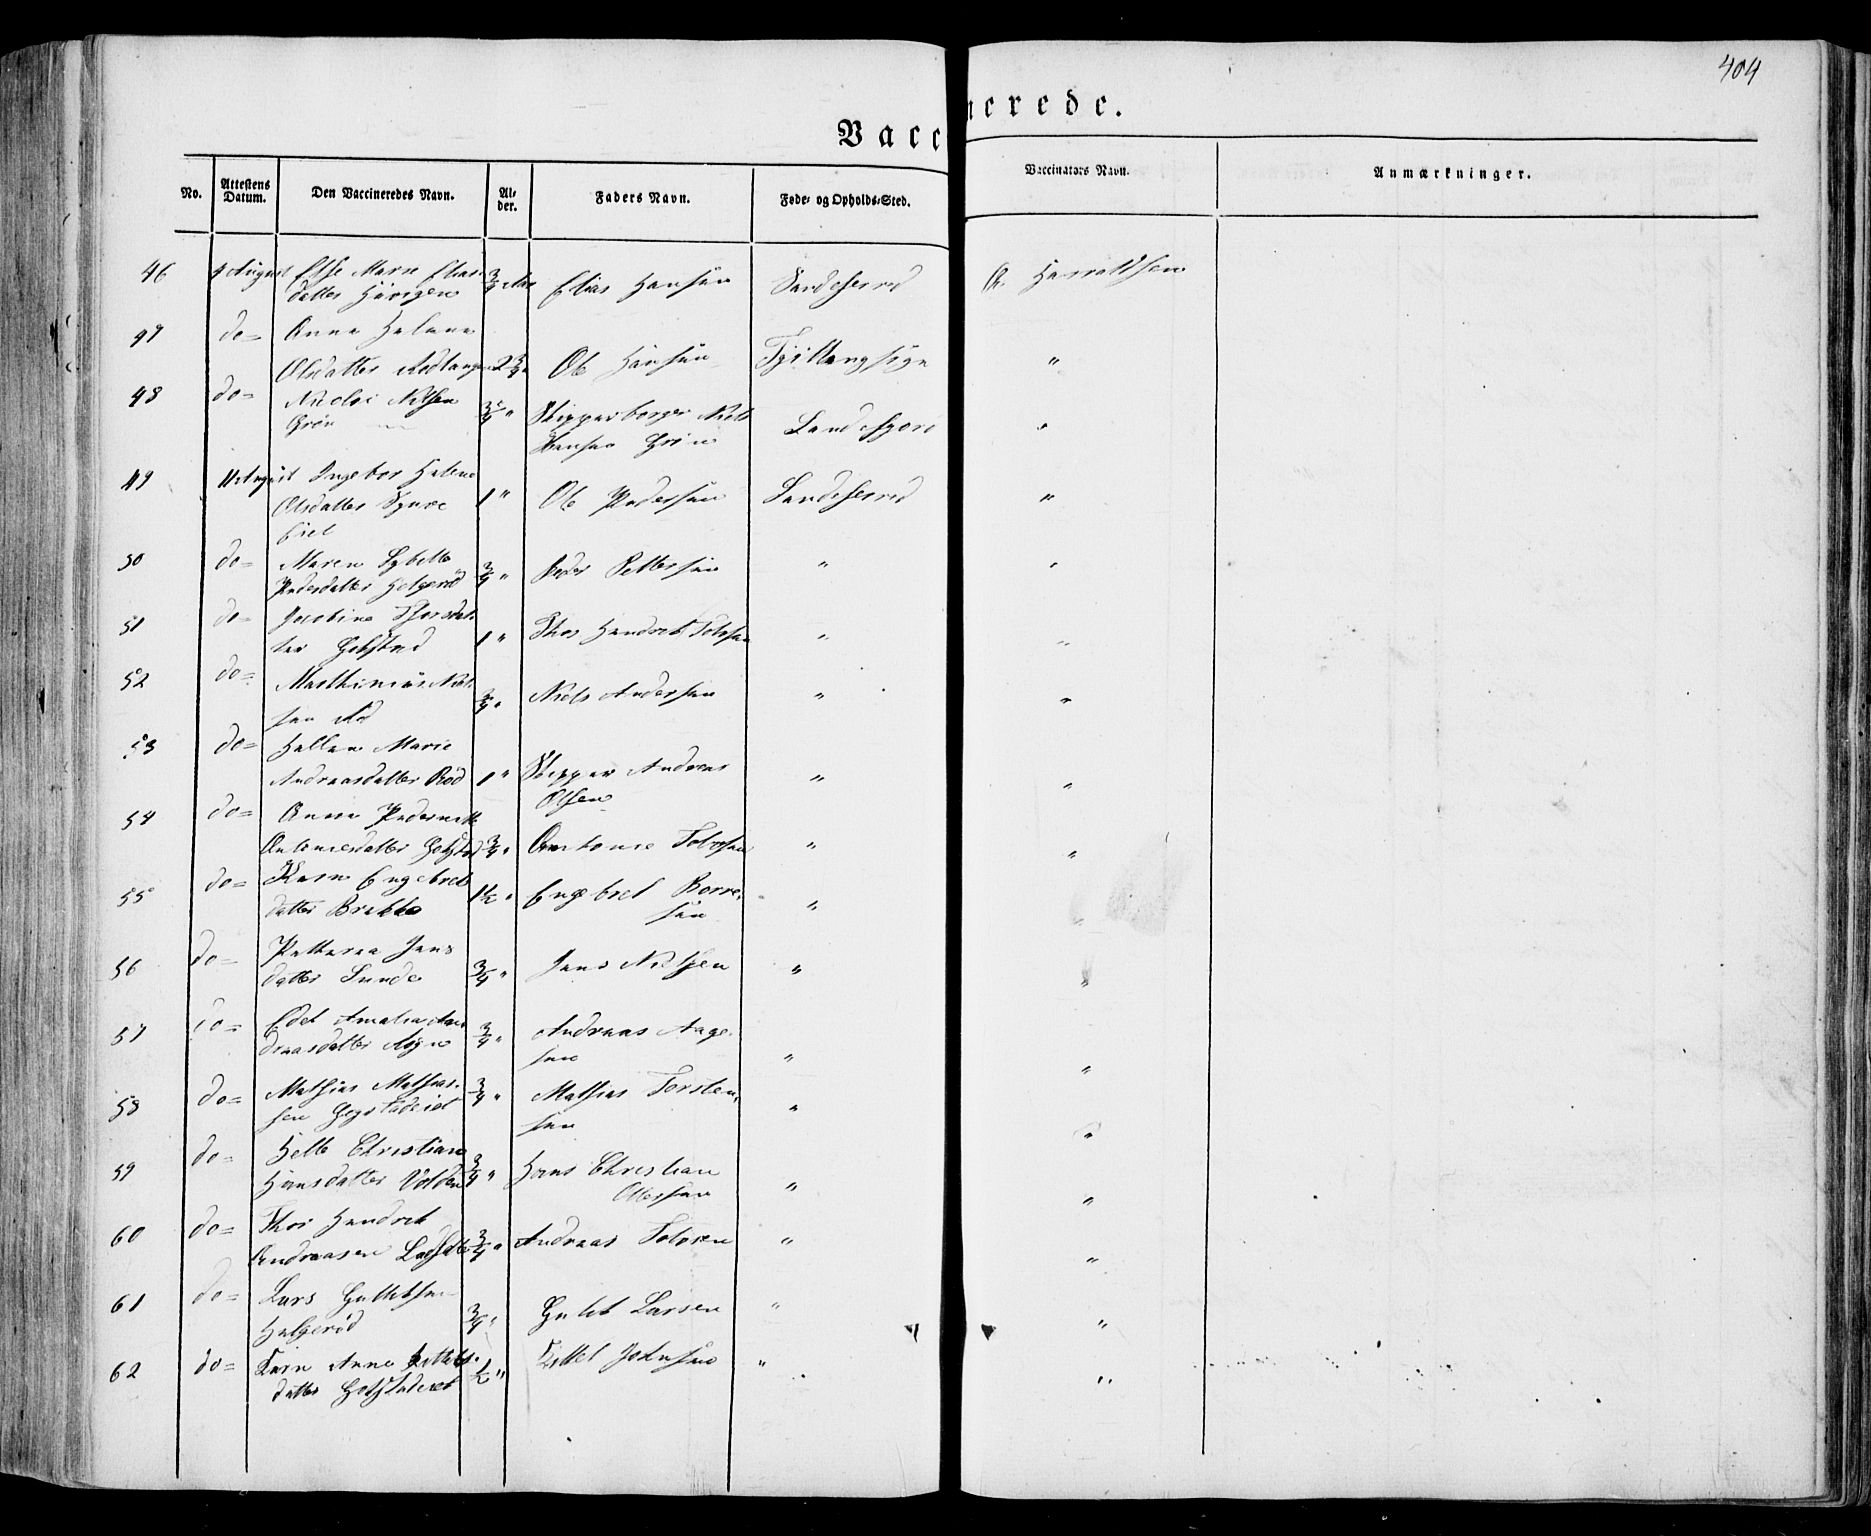 404
Vaccinerede.
No. Attestens Datum. Den Vaccineredes Navn. Alder. Faders Navn. Føde- og Opholds-Sted. Vaccinators Navn. Anmærkninger.
46 4 August Else Marn Elias
datter Haugen 3/4 Aar Elias Hansen Sandeherred Harraldsen
47 do= Anna Helene
Olsdatter Rødtangen 2 3/4 " Ole Hansen "
48 do= Nicolai Nilsen
Grøn 3/4 " Skipperborger Niels
Hansen Grøn Sandefjord "
49 11 August Ingebor Helene
Olsdatter 1 " Ole Pedersen Sandeherred "
50 do= Maren Sybille
Pedersdatter Helgerød 3/4 " Peder Pettersen " "
51 do= Jacobine Thorsdat-
ter Gokstad 1 " Thor Hendrik Tolvsen " "
52 do= Marthinius Niel-
sen Rød 3/4 " Niels Andersen " "
53 do= Hellene Marie
Andreasdatter Rød 1 " Skipper Andreas
Olsen " "
54 do= Anne
Antonesdatter 3/4 " Anthonie Tolvsen " "
55 do= Karn Engebret
datter 1 1/2 " Engebret Borre-
sen " "
56 do= Petterea Jens
datter Sunde 3/4 " Jens Nielsen " "
57 do= Edel Amalia An-
dreasdatter 3/4 " Andreas Aage-
sen " "
58 do= Mathias Mathias-
sen 3/4 " Mathias Torsten-
sen " "
59 do= Helle Christiane
Hansdatter Volden 3/4 " Hans Christian
" "
60 do= Thor Hendrik
Andreasen 3/4 " Andreas Tolvsen " "
61 do= Lars Gulliksen
Helgerød 3/4 " Gulik Larsen " "
62 do= Karn Anne Kittels-
datter 1/2 " Kittel Johnsen " "